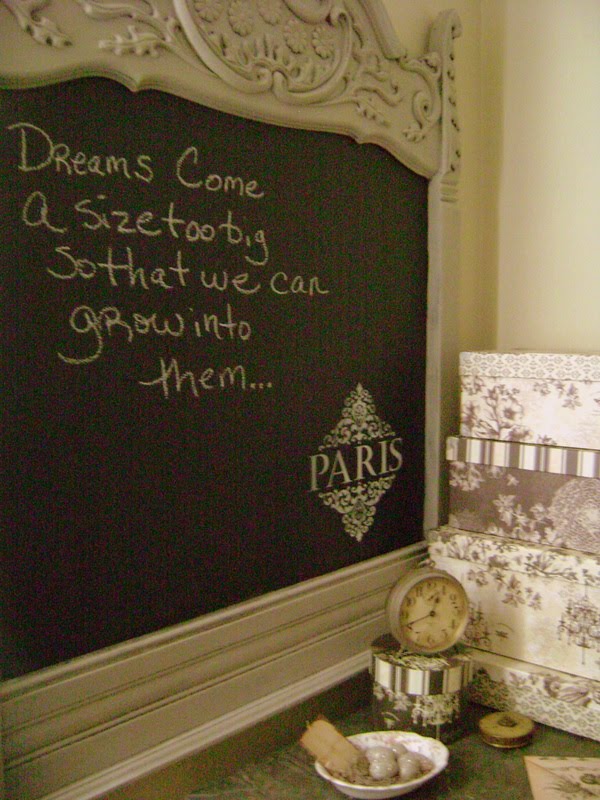 Dreams Come
A size too big
So that we can
grow into
them...
PARIS